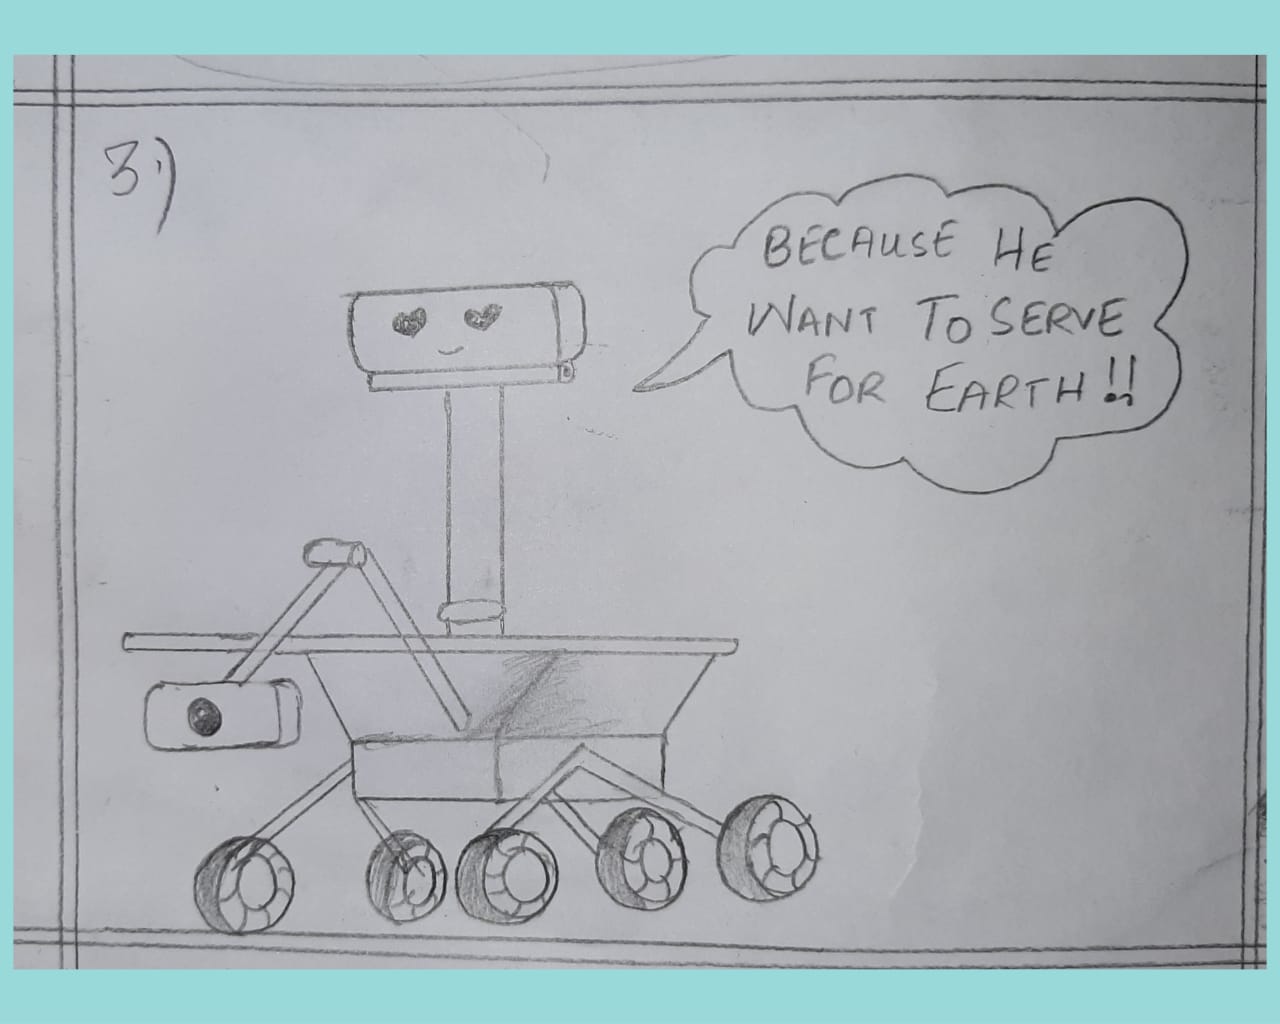 3)
BECAUSE HE
WANT TO SERVE
FOR EARTH!!